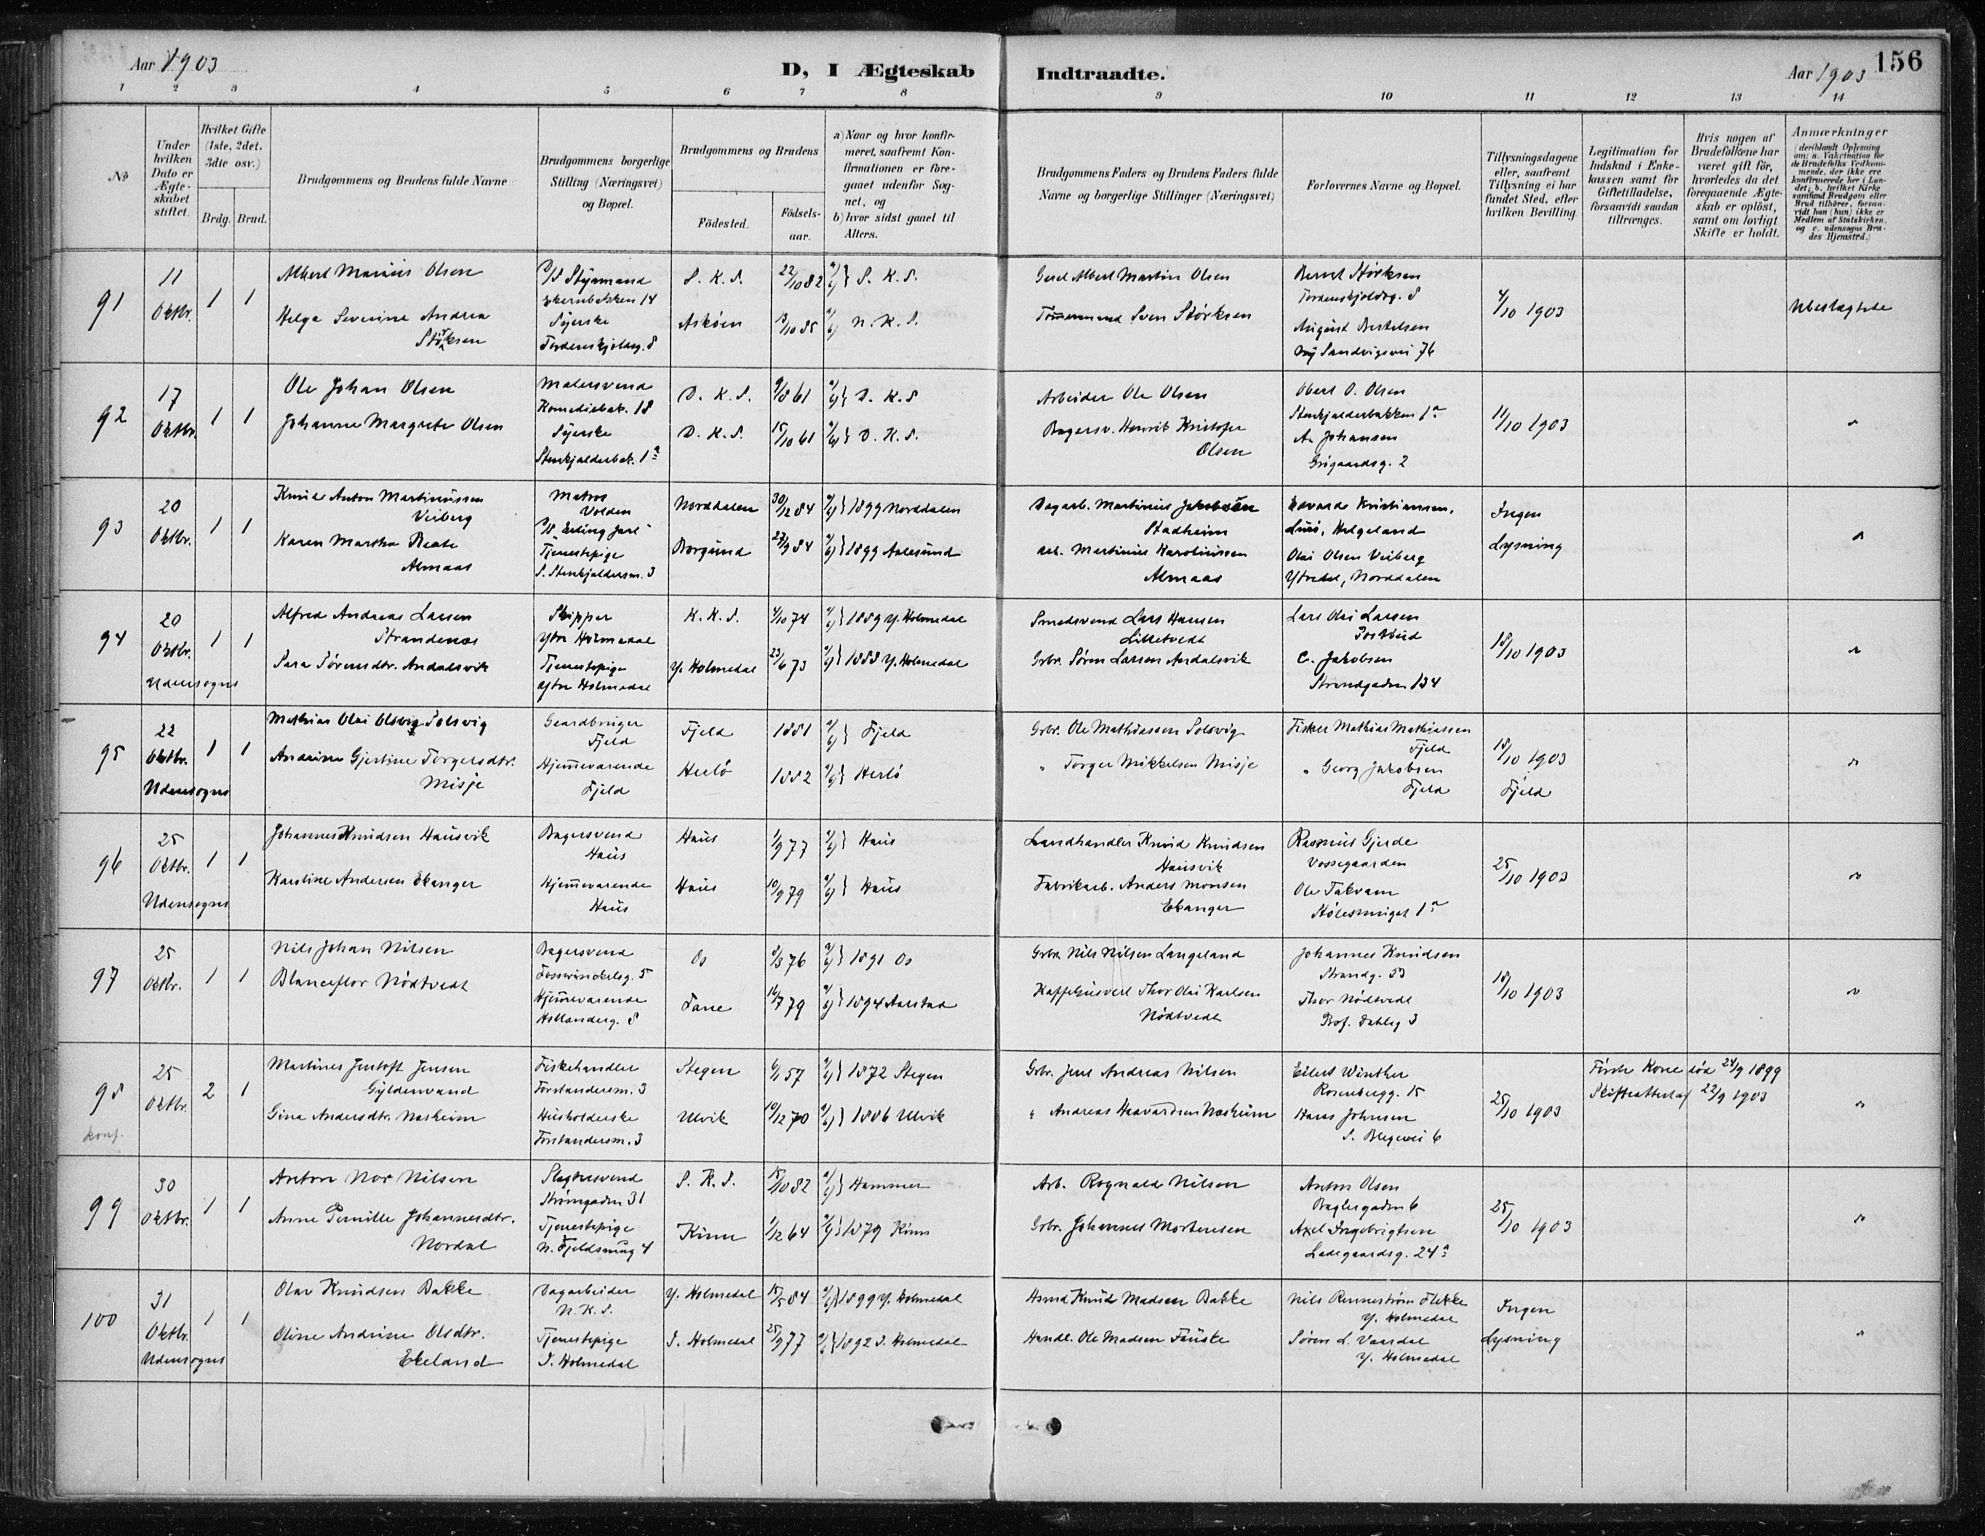 Aar 1903
D, I Ægteskab
Indtraadte.
Aar 1903
156
1 2 3 4 5 6 7 8 9 10 11 12 13 14
No
Under hvilken Dato er Ægteskabet stiftet.
Hvilket Gifte (1ste, 2det, 3die osv.)
Brdg. Brud.
Brudgommens og Brudens fulde Navne
Brudgommens borgerlige Stilling (Næringsvei) og Bopæl.
Brudgommens og Brudens
Födested.
Födselsaar.
a) Naar og hvor konfirmeret, saafremt Konfirmationen er foregaaet udenfor Sognet, og
b) hvor sidst gaaet til Alters.
Brudgommens Faders og Brudens Faders fulde Navne og borgerlige Stillinger (Næringsvei)
Forlovernes Navne og Bopæl.
Tillysningsdagene eller, saafremt Tillysning ei har fundet Sted, efter hvilken Bevilling.
Legitimation for Indskud i Enkekassen samt for Giftetilladelse, forsaavidt saadan tiltrænges.
Hvis nogen af Brudefolkene har været gift för, hvorledes da det foregaaende Ægteskab er oplöst, samt om lovligt Skifte er holdt.
Anmærkninger
91
11 Oktbr. 1 1
Albert Marius Olsen
D/S Styrmand
Ekernbakken 14
S. K. S. 22/10 82 S. K. S.
Gesel Albert Martin Olsen
Bernt Störksen
Tordenskjoldsg. 8
4/10 1903
Ubeslægtede
Helga Severine Andrea
Störksen
Syerske
Tordenskjoldsg. 8
Askøen 13/10 85 N. K. S.
Tømmermand Sven Störksen
August Bertelsen
Ny Sandvigsvei 76
92
17 Oktbr. 1 1
Ole Johan Olsen
Malersvend
Komediebak. 18
D. K. S. 9/8 61 D. K. S
Arbeider Ole Olsen
Obert O. Olsen
Stenkjelderbakken 1a
11/10 1903
Johanne Margrete Olsen
Syerske
Stenkjelderbak. 1a
D. K. S. 15/10 61 D. K. S.
Bagersv. Henrik Kristofer
Olsen
A. Johansen
Grigaardsg. 2
93
20 Oktbr. 1 1
Knud Anton Martinussen
Veiberg
Matros
Volden
D/S Erling Jarl
Norddalen 30/12 84 1899 Norddalen
Dagarb. Martinus Jakobsen
Stadheim
Edvard Kristiansen,
Lurö, Helgeland
Ingen
Lysning
Karen Martha Beate
Almaas
Tjenestepige
S. Stenkjeldersm. 3
Borgund 23/9 84 1899 Aalesund
Arb. Martinus Karolinussen
Almaas
Olai Olsen Veiberg
Ytredal, Norddalen
94
20 Oktbr. 1 1
Udensogns
Alfred Andreas Larsen
Strandenæs
Skipper
Ytre Holmedal
K. K. S. 4/10 74 1889 Y. Holmedal
Smedsvend Lars Hansen
Lilletvedt
Lars Olai Larsen
Postbud
18/10 1903
Sara Sörensdtr. Andalsvik
Tjenestepige
Ytre Holmedal
Y. Holmedal 23/6 73 1888 Y. Holmedal
Grbr. Sören Larsen Andalsvik
C. Jakobsen
Strandgaden 134
95
22 Oktbr. 1 1
Udensogns
Mathias Olai Olsen Solsvig
Gaardbruger
Fjeld
Fjeld 1881 Fjeld
Grbr. Ole Mathiassen Solsvig
Fisker Mathias Mathiassen
Fjeld
18/10 1903
Fjeld
Andrine Gjertine Torgersdtr.
Misje
Hjemmeværende
Fjeld
Herlö 1882 Herlö
" Torger Mikkelsen Misje
" Georg Jakobsen
Fjeld
96
25 Oktbr. 1 1
Udensogns
Johannes Knudsen Hausvik
Bagersvend
Haus
Haus 1/9 77 Haus
Landhandler Knud Knudsen
Hausvik
Rasmus Gjerde
Vossegaarden
25/10 1903
Karoline Andersen Ekanger
Hjemmeværende
Haus
Haus 10/9 79 Haus
Fabrikarb. Anders Monsen
Ekanger
Ole Takvam
Stölesmuget 1a
97
25 Oktbr. 1 1
Nils Johan Nilsen
Bagersvend
Fosswinckelsg. 5
Os 2/8 76 1891 Os
Grbr. Nils Nilsen Langeland
Johannes Knudsen
Strandg. 53
18/10 1903
Blanceflor Nödtvedt
Hjemmeværende
Hollenderg. 8
Fane 14/7 79 1894 Aarstad
Kaffehusvert Thor Olai Karlsen
Nödtvedt
Thor Nödtvedt
Prof. Dahlsg 3
98
konf.
25 Oktbr. 2 1
Martines Justoft Jensen
Gyldenvand
Fiskehandler
Forstandersm. 3
Stegen 6/1 57 1872 Stegen
Grbr. Jens Andreas Nilsen
Eilert Winther
Rosenbergg. 15
25/10 1903
Förste Kone död 24/9 1899
Skifteattest af 22/9 1903
Gina Andersdtr. Næsheim
Husholderske
Forstandersm. 3
Ulvik 10/12 70 1886 Ulvik
" Andreas Haavardsen Næsheim
Hans Johnsen
S. Blegevei 6
99
30 Oktbr. 1 1
Anton Nor Nilsen
Slagtersvend
Strömgaden 31
S. K. S. 15/10 82 Hammer
Arb. Rognald Nilsen
Anton Olsen
Baglergaden 6
25/10 1903
Anne Pernille Johannesdtr.
Nordal
Tjenestepige
N. Fjeldsmug 4
Kinn 1/12 64 1879 Kinn
Grbr. Johannes Mortensen
Axel Ingebrigtsen
Ladegaardsg. 24a
100
31 Oktbr. 1 1
Udensogns
Olav Knudsen Bakke
Dagarbeider
N. K. S.
Y. Holmedal 15/5 84 1899 Y. Holmedal
Knud Madsen Bakke
Nils Flekke
Y. Holmedal
Ingen
Lysning
Oline Andrine Olsdtr.
Ekeland
Tjenestepige
I. Holmedal
I. Holmedal 25/9 77 1892 I. Holmedal
Handl. Ole Madsen Fauske
Sören L. Vaardal
Y. Holmedal